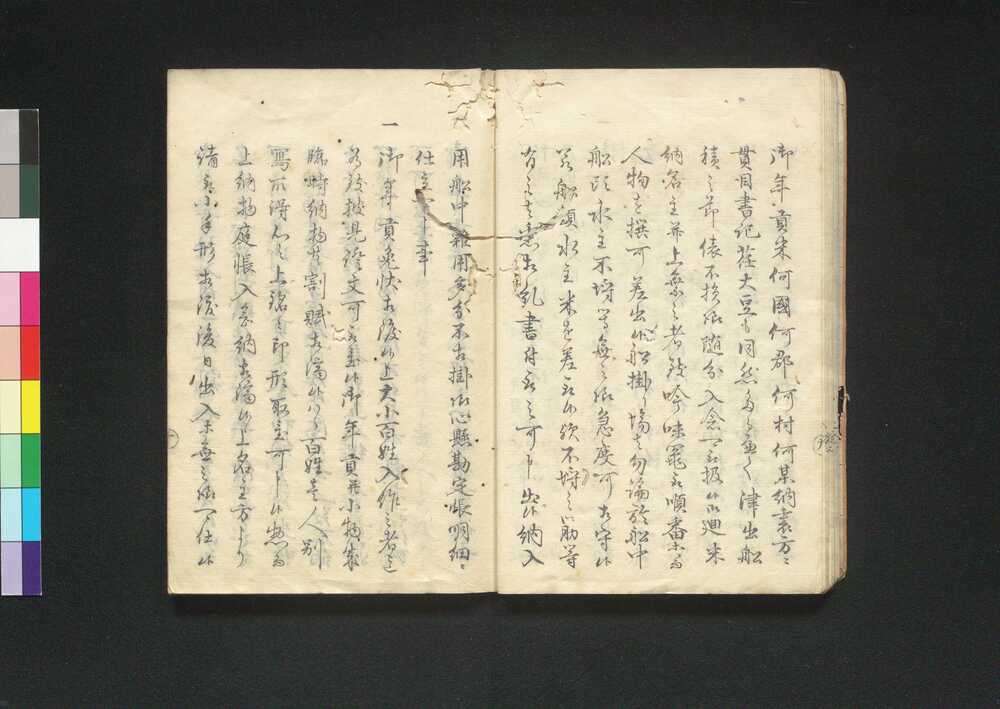 御年貢米何國何郡何村何某納壱方ニ
貫目書記荏大豆も同然たるへく津出船
積之節俵不損様随分入念可取扱候廻米
納名主并上乗之者致吟味冥加順番ニ而
人物を撰可差出候船掛り場者勿論於船中
船頭水主不埒等無之様急度可相守候
若船頭水主米を差取候歟不埒之筋等
有之者急相糺書付取之可申出候納入
用船中雑用多分不相掛様心懸勘定帳明細ニ
仕立可申事
一 御年貢免状相渡候上大小百姓入作之者迄
為致披見證文可取置候御年貢并小物成
臨時納物等割賦相済候ハヽ百姓壱人別
寫取得心之上銘々印形取置可申候惣而
上納物庭帳入念納相済候上名主方より
請取小手形相渡後日出入等無之様可仕候